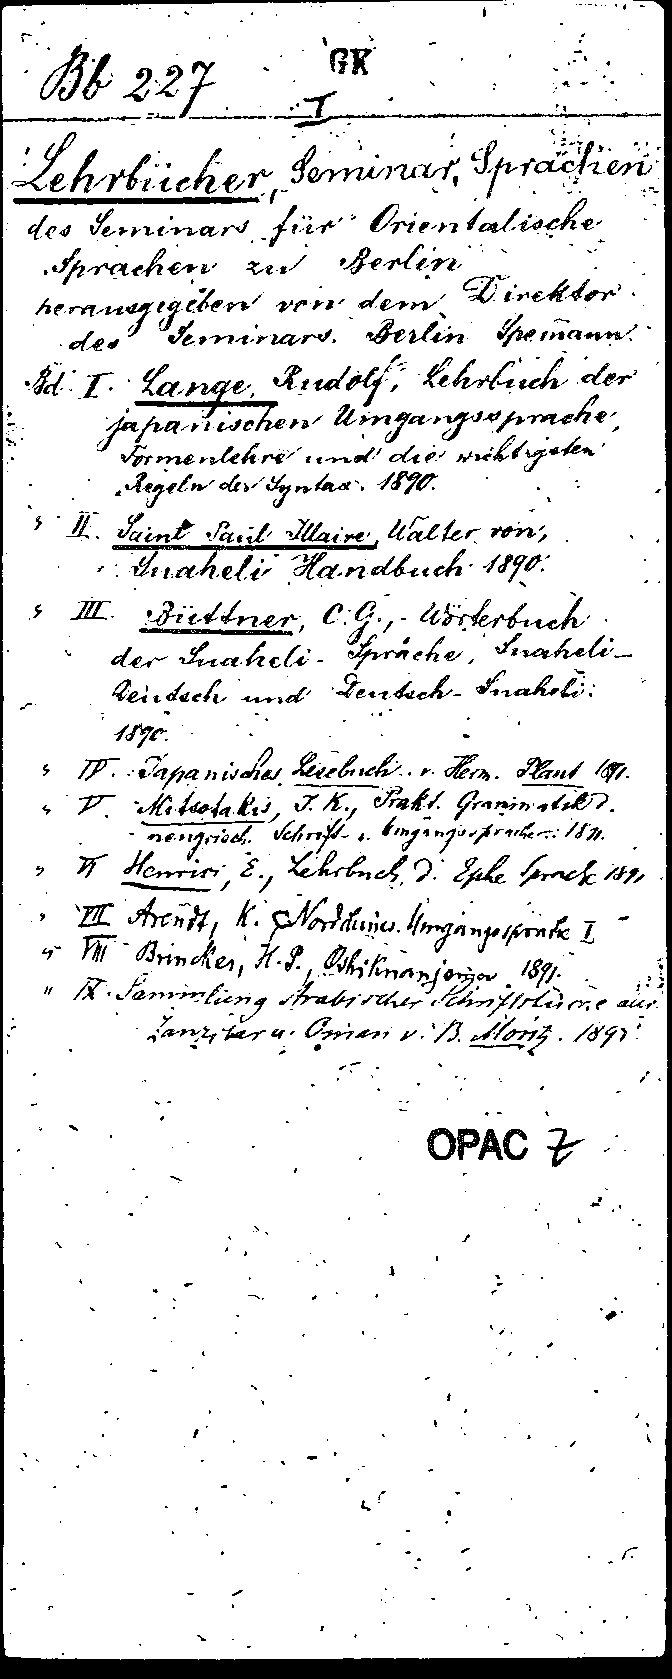 Bb 227
GK
I
Lehrbücher, Seminar, Sprachen
des Seminars für Orientalische
Sprachen zu Berlin
herausgegeben von dem Direktor
des Seminars. Berlin Spemann.
Bd. I. Lange, Rudolf, Lehrbuch der
japanischen Umgangssprache,
Formenlehre und die wichtigsten
Regeln der Syntax. 1890.
" II. Saint Paul Illaire, Walter von,
Suaheli Handbuch 1890.
" III. Büttner, C. G., Wörterbuch
der Suaheli-Sprache, Suaheli-
Deutsch und Deutsch-Suaheli.
1890.
" IV. Japanisches Lesebuch v. Herm. Plaut 1891.
" V. Mitsotakis, J. K., Prakt. Grammatik d.
neugriech. Schrift- u. Umgangssprache. 1891.
" VI Henrici, E., Lehrbuch d. Ephe Sprache 1891
" VII Arendt, K. Nordchines. Umgangssprache I
" VIII Brincker, H. P., 1891.
" IX. Sammlung Arabischer Schriftstücke aus
Zanzibar u. Oman v. B. Moritz.
OPAC Z